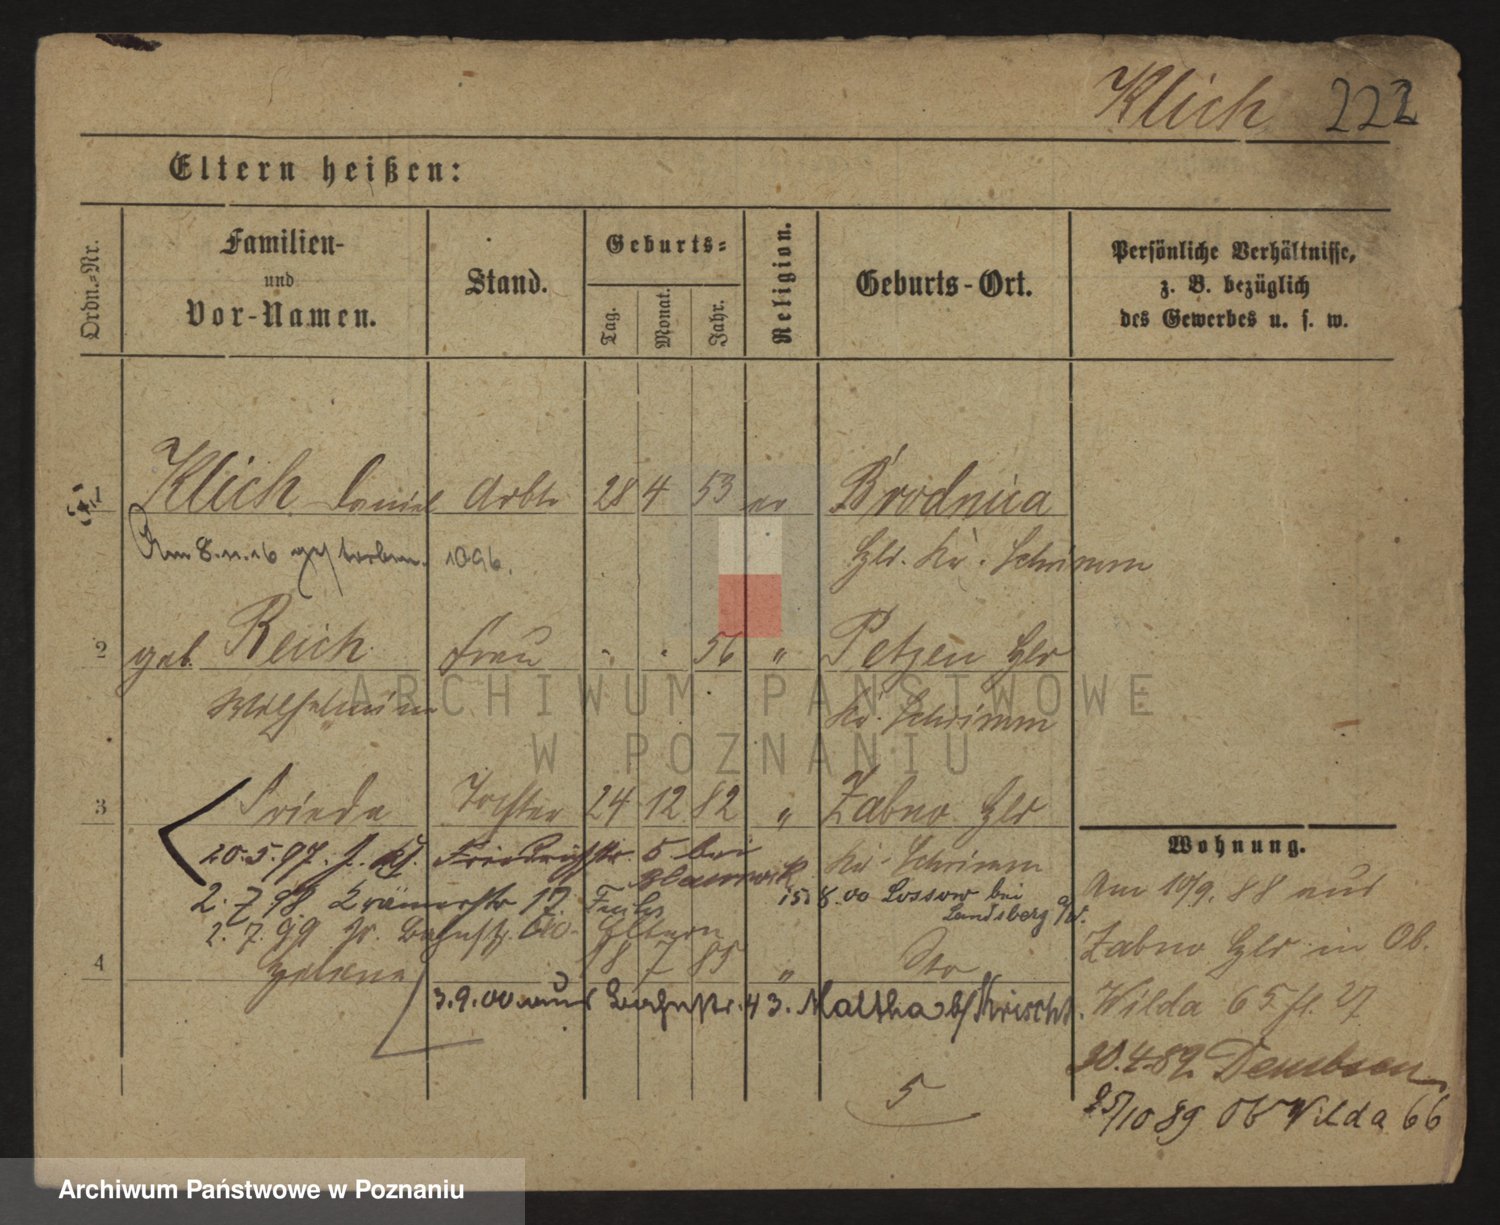 Klich 222
Eltern heißen:
Ordn.-Nr.
Familien-
und
Vor-Namen.
Stand.
Geburts-
Tag.
Monat.
Jahr.
Religion.
Geburts-Ort.
Persönliche Verhältnisse,
z. B. bezüglich
des Gewerbes u. s. w.
1 Klich Daniel Arbtr 28 4 53 ev Brodnica
Am 8.11.16 gestorben. 1096. Hld. Kr. Schrimm
2 geb. Reich Frau " " 56 " Petzen Hld
Wilhelmine Kr. Schrimm
3 Frieda Tochter 24 12 82 " Zabno Hld
Wohnung.
20.5.97. Friedrichstr. 5 bei Kr. Schrimm
2.7.98 Krämerstr 17. 15 8.00 Lossow bei
Landsberg a/W.
2.7.99 Gr. Eltern
4 Helene 18 7 85 " Dto
3.9.00 aus Bahnstr. 43. Maltha b/
5
Am 10/9.88 aus
Zabno Hld in Ob.
Wilda 65
20.4.89 Dembsen
25/10 89 Ob Wilda 66
ARCHIWUM PAŃSTWOWE
W POZNANIU
Archiwum Państwowe w Poznaniu